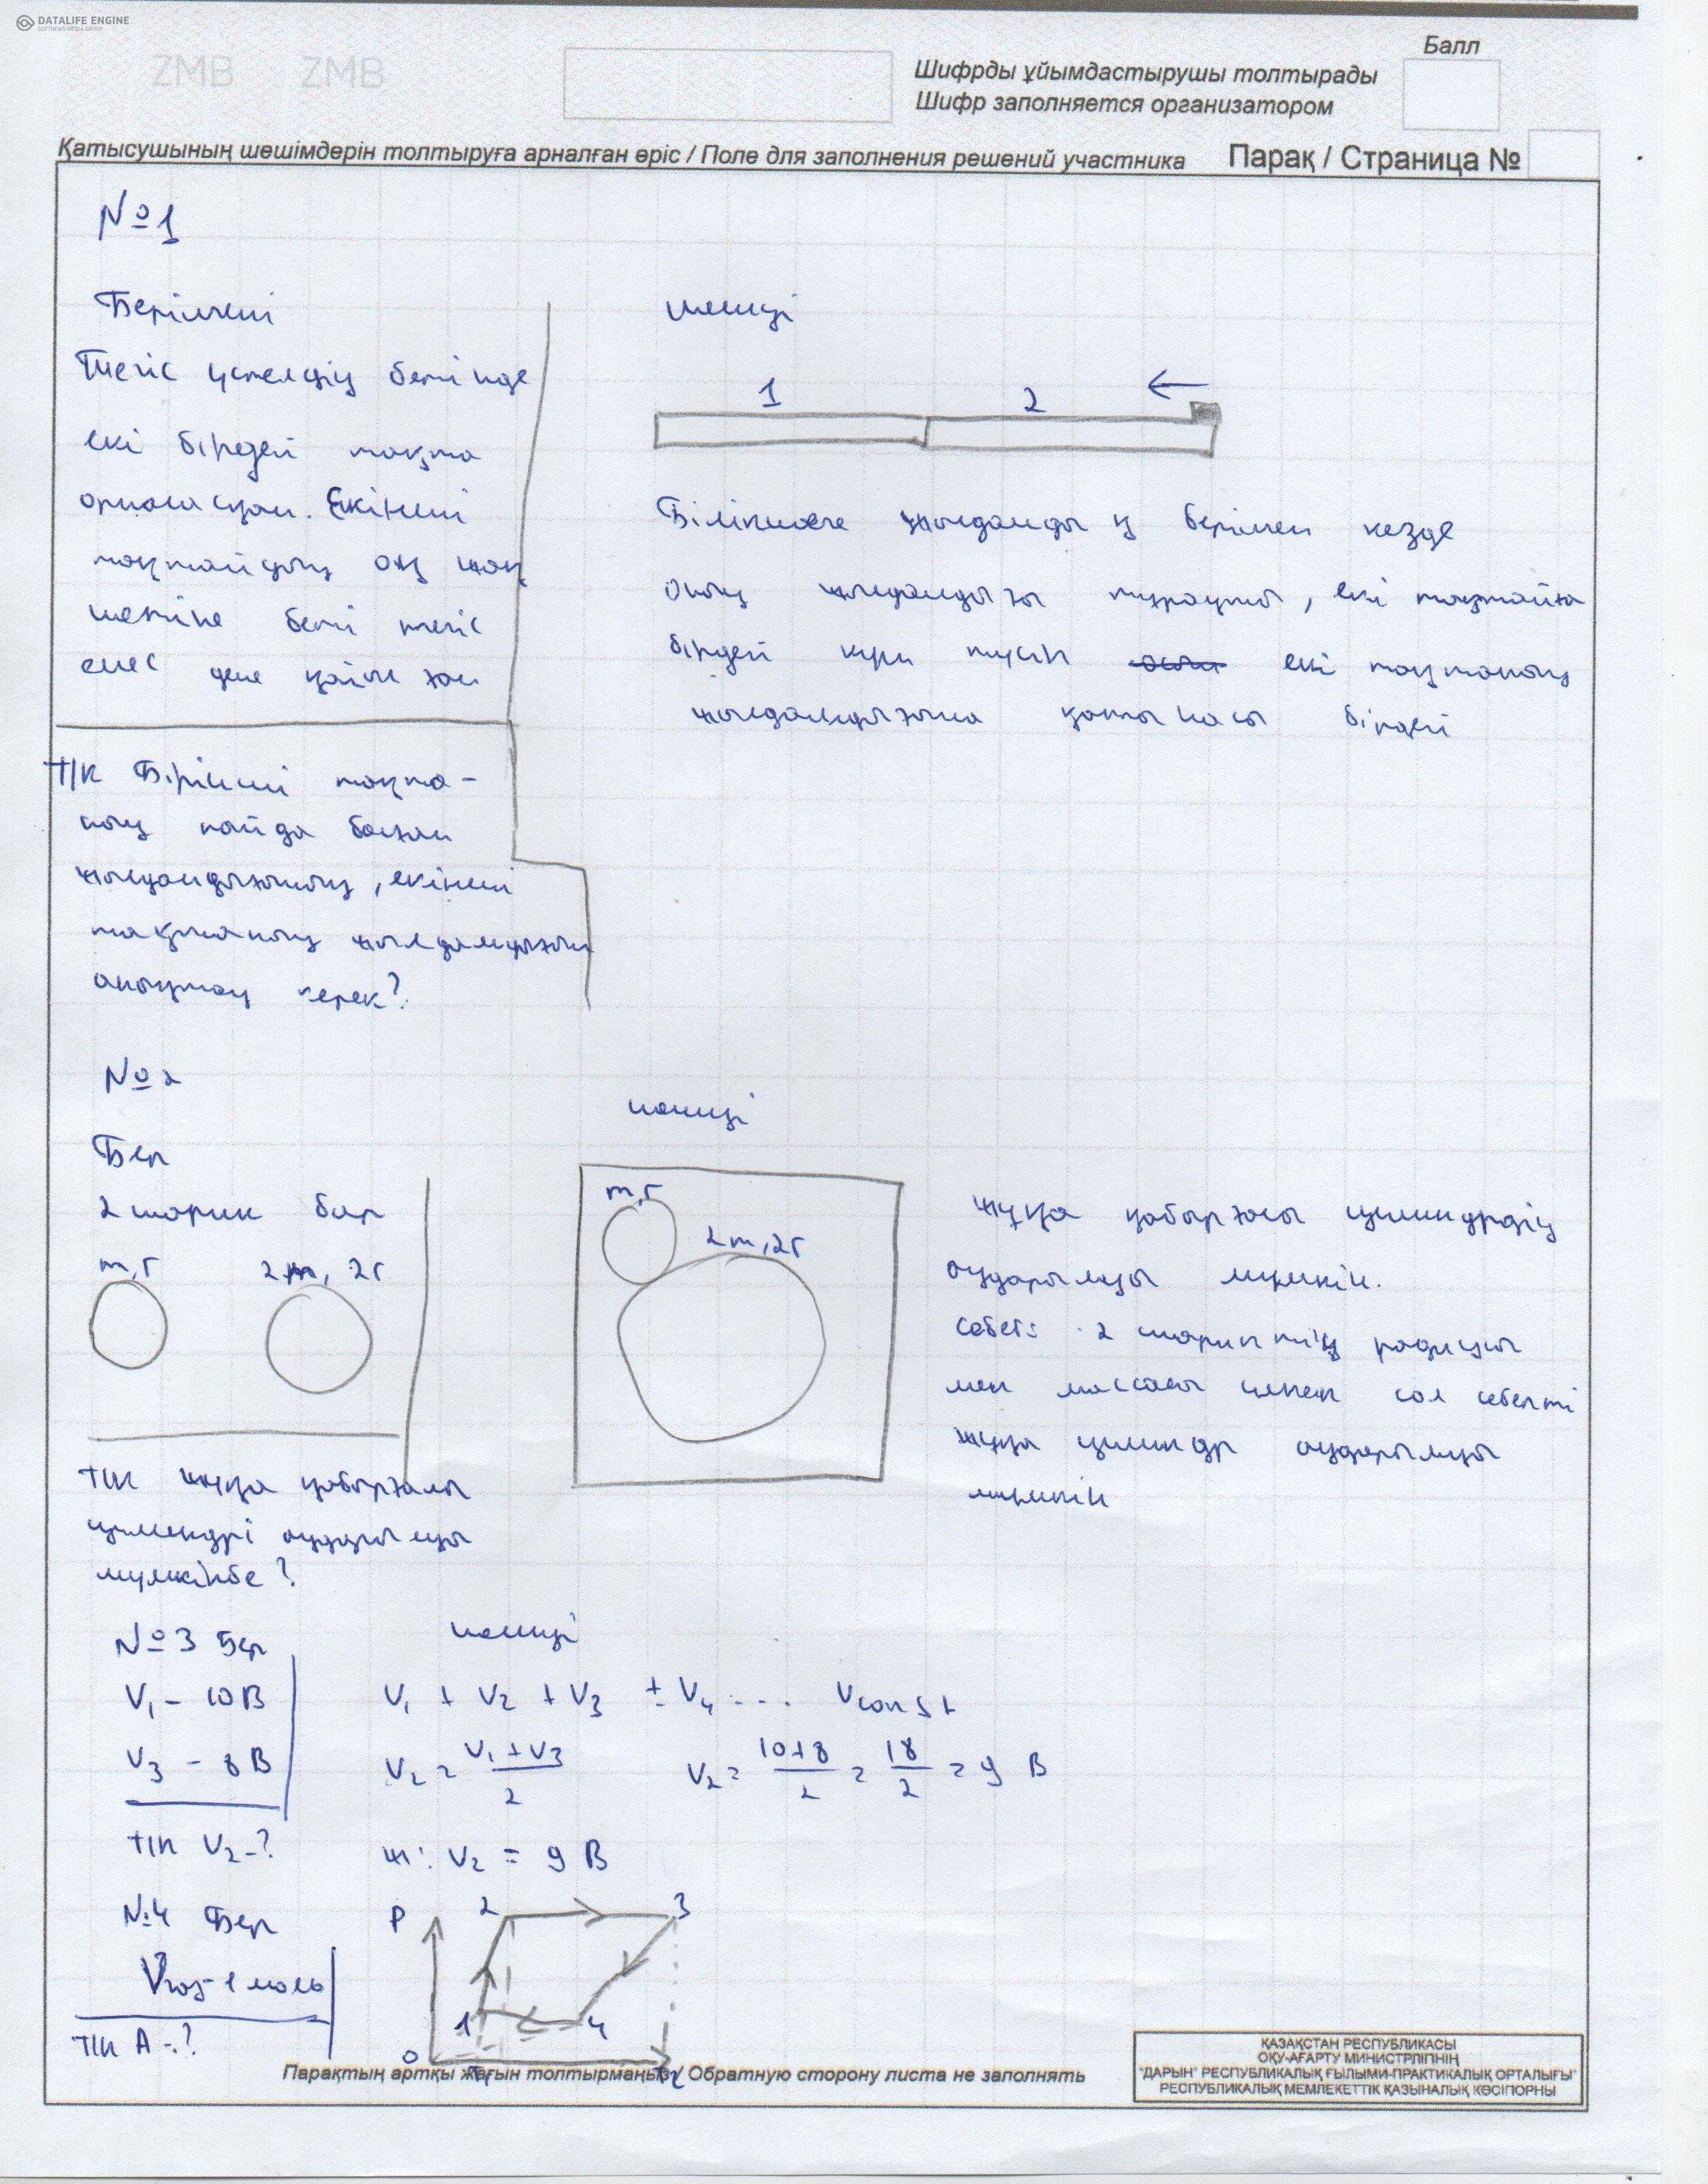 DATALIFE ENGINE
SOFTNEWS MEDIA GROUP
ZMB ZMB
Балл
Шифрды ұйымдастырушы толтырады
Шифр заполняется организатором
Қатысушының шешімдерін толтыруға арналған өріс / Поле для заполнения решений участника Парақ / Страница №
№1
Берілгені
Тегіс үстелдің бетінде
екі бірдей тақта
орналасқан. Екінші
тақтайдың оң жақ
шетіне беті тегіс
емес дене қойылған
Т/К Бірінші тақта-
ның пайда болған
жылдамдығының, екінші
тақтаның жылдамдығын
анықтау керек?
шешуі
1 2
жылдамдық берілген кезде
оның жылдамдығы тұрақты, екі тақтайға
бірдей күш түсіп екі тақтаның
жылдамдығына қатынасы бірдей
№2
Бер
2 шарик бар
m,r 2m, 2r
Т/К жұқа қабырғалы
цилиндрі аударылуы
мүмкінбе?
шешуі
m,r
2m,2r
жұқа қабырғасы цилиндрдің
аударылуы мүмкін.
себебі 2 шариктің радиусы
мен массасы үлкен сол себепті
жұқа цилиндр аударылуы
мүмкін
№3 Бер
V₁ - 10 В
V₃ - 8 В
Т/К V₂ - ?
шешуі
V₁ + V₂ + V₃ ± V₄ .... Vconst
V₂ = V₁+V₃/2 V₂ = 10+8/2 = 18/2 = 9 В
ж: V₂ = 9 В
№4 Бер
Vгаз - 1 моль
Т/К А - ?
P 2 3
1 4
0
Парақтың артқы жағын толтырмаңыз / Обратную сторону листа не заполнять
ҚАЗАҚСТАН РЕСПУБЛИКАСЫ
ОҚУ-АҒАРТУ МИНИСТРЛІГІНІҢ
"ДАРЫН" РЕСПУБЛИКАЛЫҚ ҒЫЛЫМИ-ПРАКТИКАЛЫҚ ОРТАЛЫҒЫ"
РЕСПУБЛИКАЛЫҚ МЕМЛЕКЕТТІК ҚАЗЫНАЛЫҚ КӘСІПОРНЫ